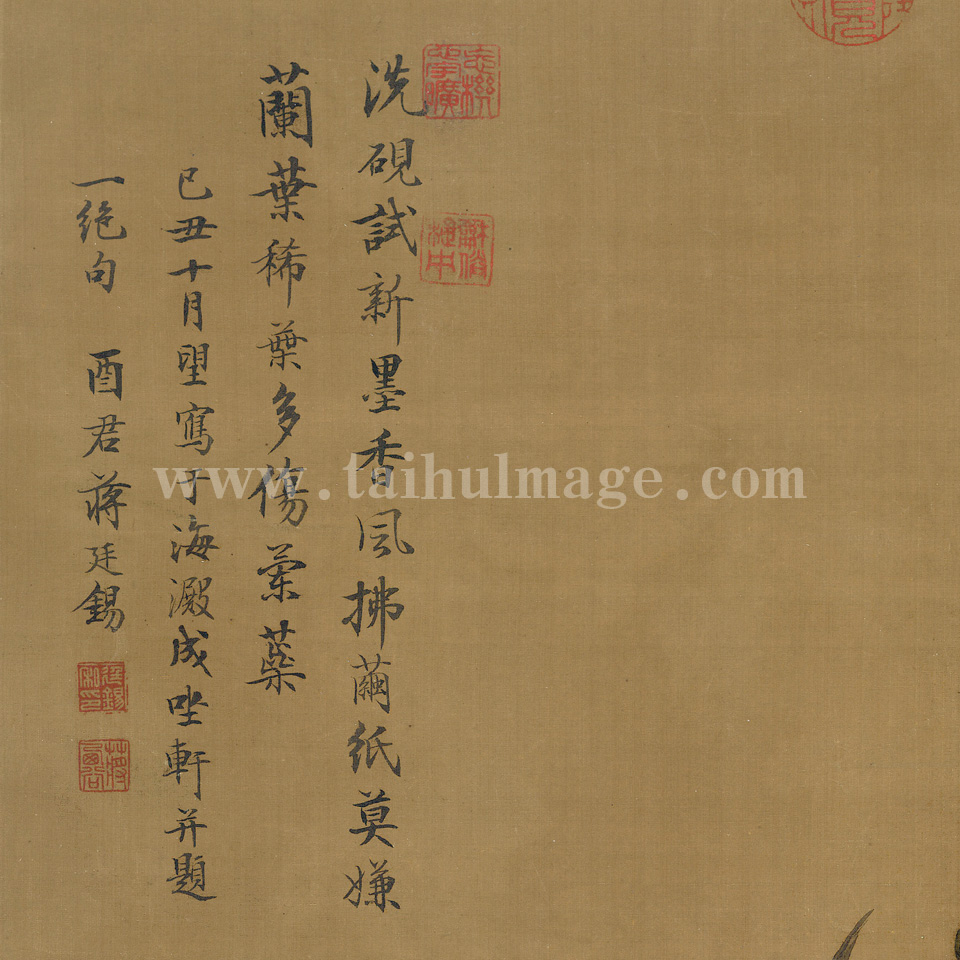 洗硯試新墨香風拂繭紙莫嫌
蘭葉稀葉多傷蘭蘂
己丑十月望寫于海澱成坐軒并題
一絶句 酉君蔣廷錫
www.taihuImage.com